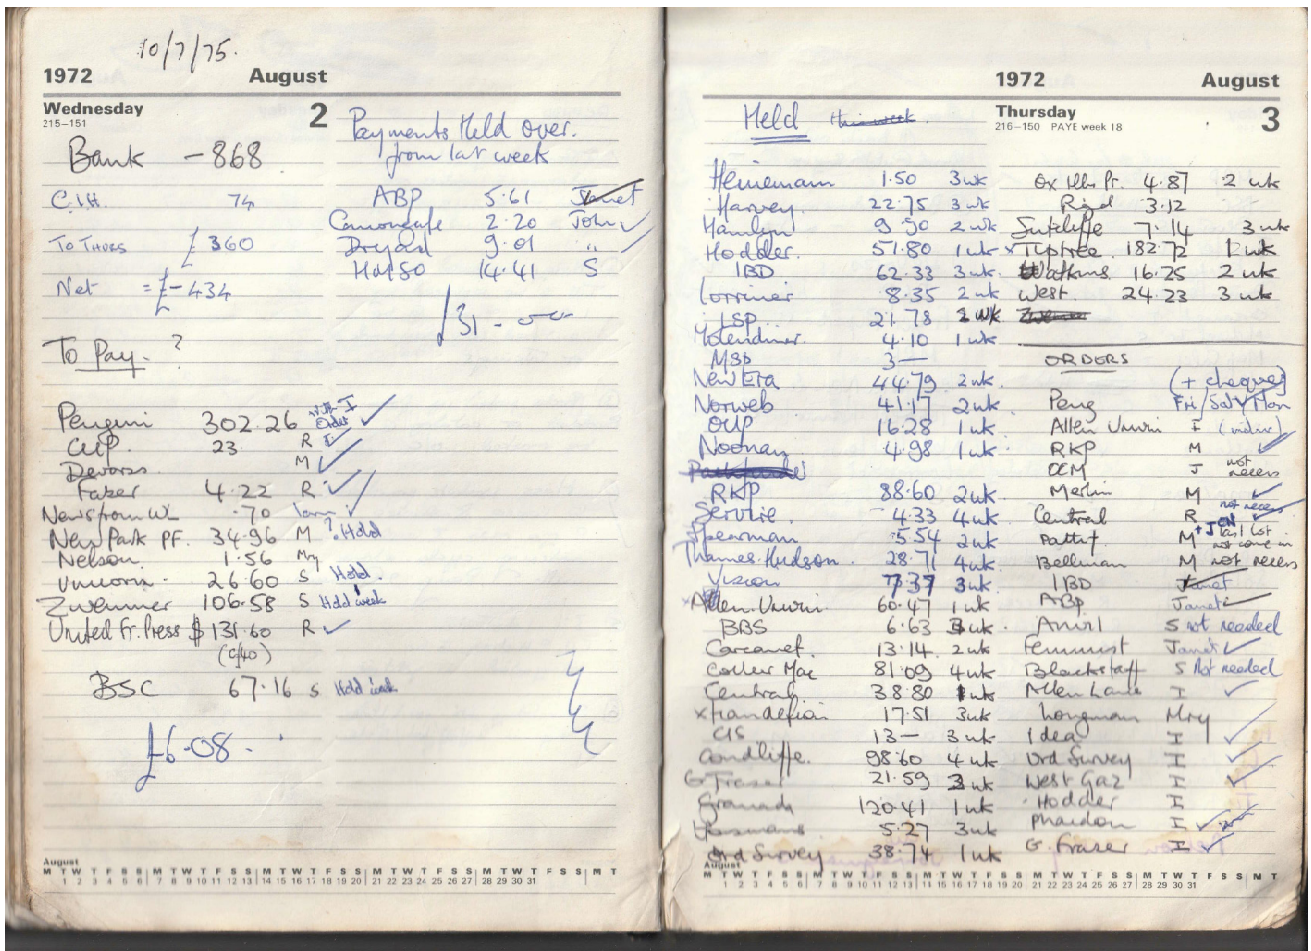 10/7/75.
1972 August
Wednesday 2
215-151
Bank -868
C.I.H. 74
To Thurs £360
Net = £-434
To Pay - ?
Penguin 302.26 with order I
CUP 23 R I
Devorss M
Faber 4.22 R
News from W 1.70
New Park PF. 34.96 M ? Hold
Nelson 1.56 Mry
Unicorn 26.60 S Hold
Zwemmer 106.58 S Hold week
United Fr. Press $131.60 R
(C/40)
BSC 67.16 S Hold week
£6.08.
Payments Held over.
from last week
ABP 5.61 Janet
Canongate 2.20 John
Dryad 9.01 "
HMSO 14.41 S
£31-
August
M T W T F S S M T W T F S S M T W T F S S M T W T F S S M T W T F S S M T
1 2 3 4 5 6 7 8 9 10 11 12 13 14 15 16 17 18 19 20 21 22 23 24 25 26 27 28 29 30 31
1972 August
Thursday 3
216-150 PAYE week 18
Held this week
Heinemann 1.50 3 wk
Harvey 22.75 3 wk
Hamlyn 9.50 2 wk
Hodder 57.80 1 wk
IBD 62.33 3 wk
Lorrimer 8.35 2 wk
LSP 21.78 2 wk
Molendinar 4.10 1 wk
MSD 3—
New Era 44.79 2 wk
Norweb 41.17 2 wk
OUP 16.28 1 wk
Noonan 4.98 1 wk
RKP 88.60 2 wk
Servire 4.33 4 wk
Spearman 5.54 2 wk
Thames. Hudson 28.71 4 wk
Vision 7.37 3 wk
Allen. Unwin 60.47 1 wk
BBS 6.63 3 wk
Carcanet 13.14 2 wk
Collier Mac 81.09 4 wk
Central 38.80 1 wk
x 17.51 3 wk
CIS 13— 3 wk
Cundliffe 98.60 4 wk
G Fraser 21.59 3 wk
Granada 120.41 1 wk
5.27 3 wk
Ord Survey 38.74 1 wk
Ox Pr. 4.87 2 wk
3.12
Sutcliffe 7.14 3 wk
x Tiptree 182.72 1 wk
Watkins 16.25 2 wk
West 24.23 3 wk
ORDERS
(+ cheque)
Peng Fri/Sat/Mon
Allen Unwin I
RKP M
OCM J not necess
Merlin M
Central R not necess
Pattist M + JON last lot not come in
Bellman M not necess
IBD Janet
ABP Janet
Anvil S not needed
Feminist Janet
Blackstaff S Not needed
Allen Lane I
Longman Mry
Idea I
Ord Survey I
West Gaz I
Hodder I
Phaidon I
G. Fraser I
August
M T W T F S S M T W T F S S M T W T F S S M T W T F S S M T W T F S S M T
1 2 3 4 5 6 7 8 9 10 11 12 13 14 15 16 17 18 19 20 21 22 23 24 25 26 27 28 29 30 31